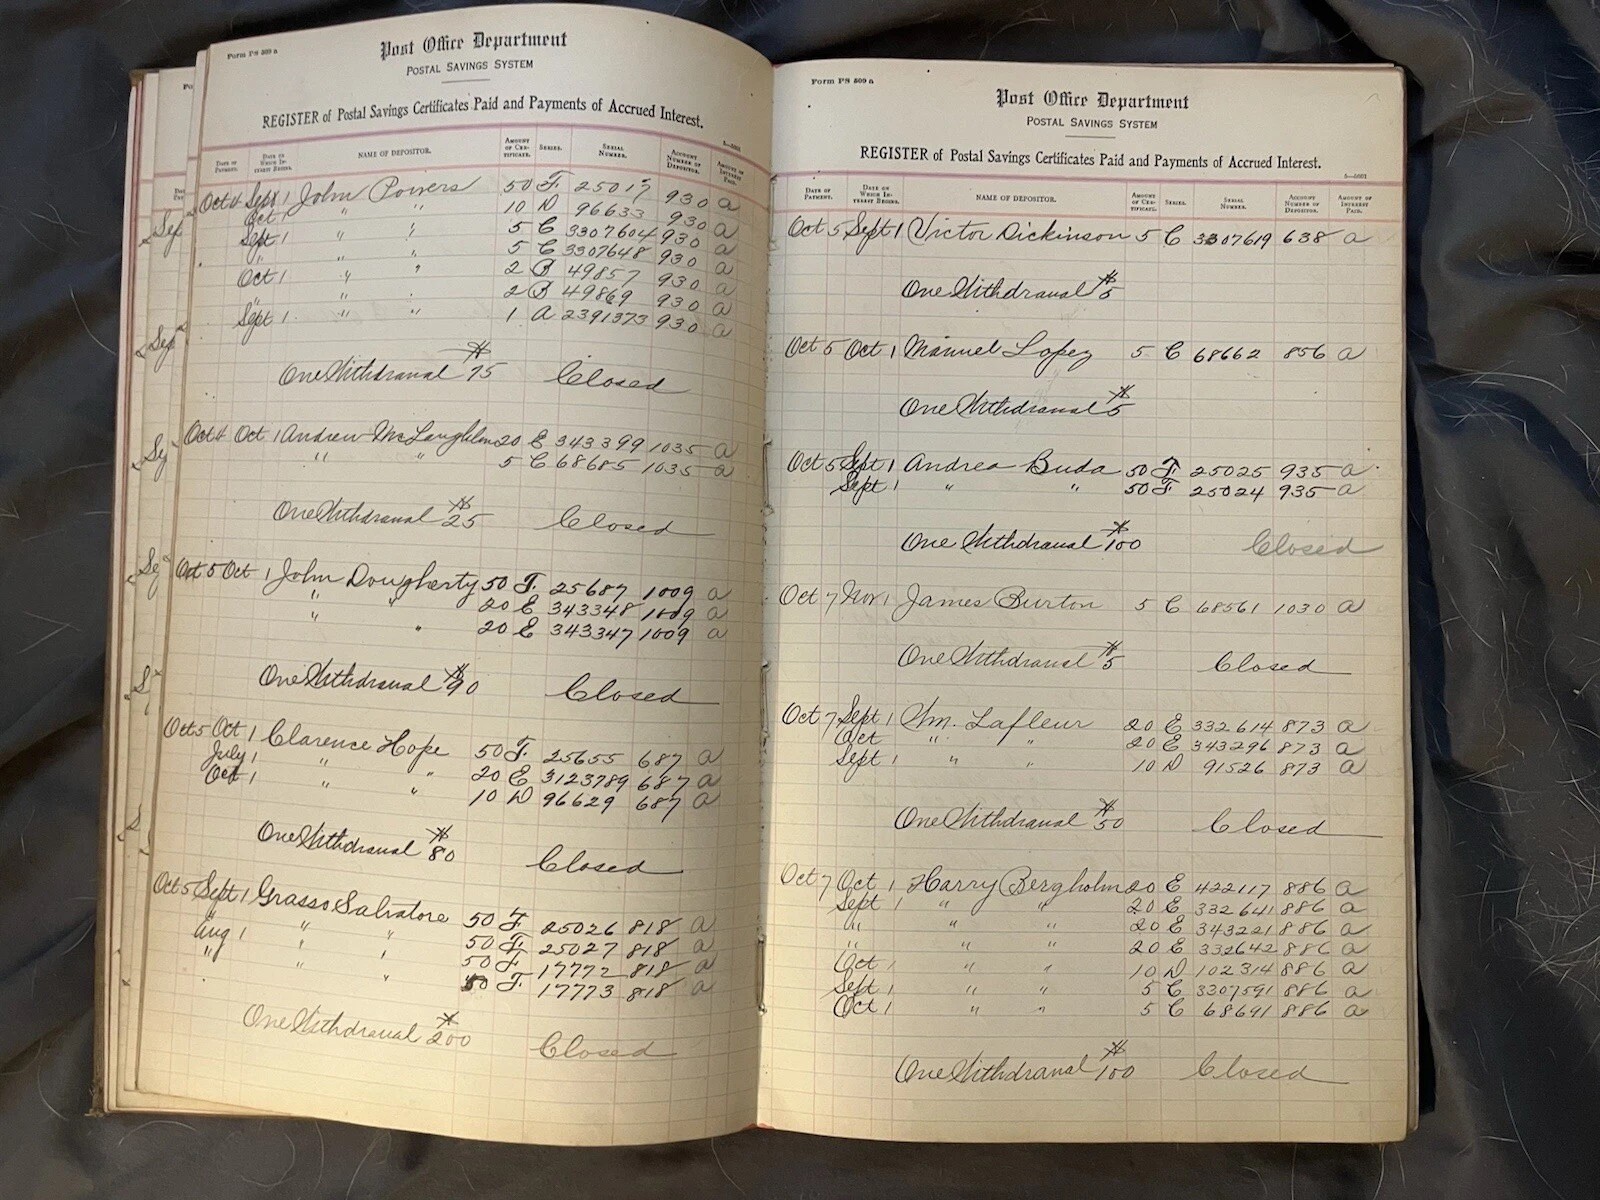 Form PS 509 a
Post Office Department
POSTAL SAVINGS SYSTEM
REGISTER of Postal Savings Certificates Paid and Payments of Accrued Interest.
5—5501
DATE OF PAYMENT. DATE ON WHICH INTEREST BEGINS. NAME OF DEPOSITOR. AMOUNT OF CERTIFICATE. SERIES. SERIAL NUMBER. ACCOUNT NUMBER OF DEPOSITOR. AMOUNT OF INTEREST PAID.
Oct 4 Sept 1 John Powers 50 F 25017 930 a
Oct 1 " " 10 D 96633 930 a
Sept 1 " " 5 C 3307604 930 a
" " " 5 C 3307648 930 a
Oct 1 " " 2 B 49857 930 a
" " " 2 B 49869 930 a
Sept 1 " " 1 A 2391373 930 a
One Withdrawal $75 Closed
Oct 4 Oct 1 Andrew McLaughlin 20 E 343399 1035 a
" " 5 C 68685 1035 a
One Withdrawal $25 Closed
Oct 5 Oct 1 John Dougherty 50 F 25687 1009 a
" " 20 E 343348 1009 a
" " 20 E 343347 1009 a
One Withdrawal $90 Closed
Oct 5 Oct 1 Clarence Hope 50 F 25655 687 a
July 1 " " 20 E 3123789 687 a
Oct 1 " " 10 D 96629 687 a
One Withdrawal $80 Closed
Oct 5 Sept 1 Grasso Salvatore 50 F 25026 818 a
" " " 50 F 25027 818 a
Aug 1 " " 50 F 17772 818 a
" " " 50 F 17773 818 a
One Withdrawal $200 Closed
Form PS 509 a
Post Office Department
POSTAL SAVINGS SYSTEM
REGISTER of Postal Savings Certificates Paid and Payments of Accrued Interest.
5—5501
DATE OF PAYMENT. DATE ON WHICH INTEREST BEGINS. NAME OF DEPOSITOR. AMOUNT OF CERTIFICATE. SERIES. SERIAL NUMBER. ACCOUNT NUMBER OF DEPOSITOR. AMOUNT OF INTEREST PAID.
Oct 5 Sept 1 Victor Dickinson 5 C 3307619 638 a
One Withdrawal $5
Oct 5 Oct 1 Manuel Lopez 5 C 68662 856 a
One Withdrawal $5
Oct 5 Sept 1 Andrea Buda 50 F 25025 935 a
Sept 1 " " 50 F 25024 935 a
One Withdrawal $100 Closed
Oct 7 Nov 1 James Burton 5 C 68561 1030 a
One Withdrawal $5 Closed
Oct 7 Sept 1 Wm. Lafleur 20 E 332614 873 a
Oct " " 20 E 343296 873 a
Sept 1 " " 10 D 91526 873 a
One Withdrawal $50 Closed
Oct 7 Oct 1 Harry Bergholm 20 E 422117 886 a
Sept 1 " " 20 E 332641 886 a
" " " 20 E 343221 886 a
" " " 20 E 332642 886 a
Oct 1 " " 10 D 102314 886 a
Sept 1 " " 5 C 3307591 886 a
Oct 1 " " 5 C 68691 886 a
One Withdrawal $100 Closed